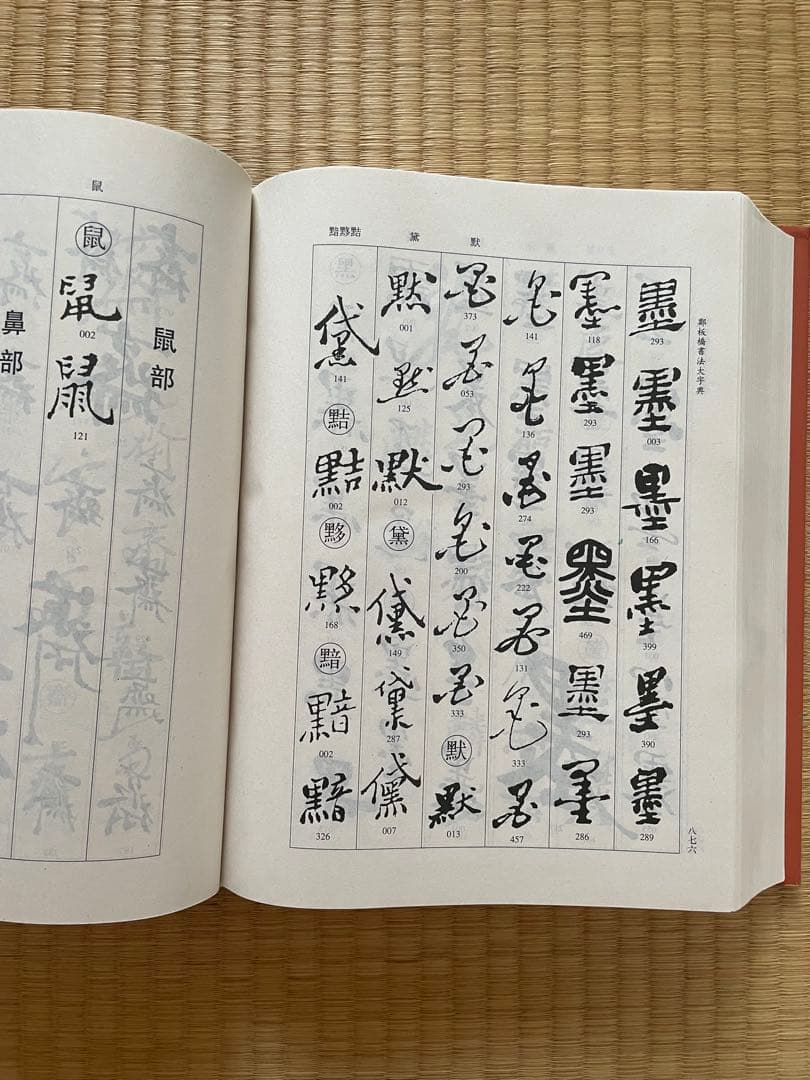 鄭板橋書法大字典
默
黛
黠黟黯
墨 293
墨 003
墨 166
墨 399
墨 390
墨 289
墨 118
墨 293
墨 293
墨 469
墨 293
墨 286
墨 141
墨 136
墨 274
墨 222
墨 131
墨 333
墨 457
墨 373
墨 053
墨 293
墨 200
墨 350
墨 333
默
默 013
默 001
默 125
默 012
黛
黛 149
黛 287
黛 007
黛 141
黠
黠 002
黟
黟 168
黯
黯 002
黯 326
八七六
鼠
鼠部
鼠
鼠 002
鼠 121
鼻部